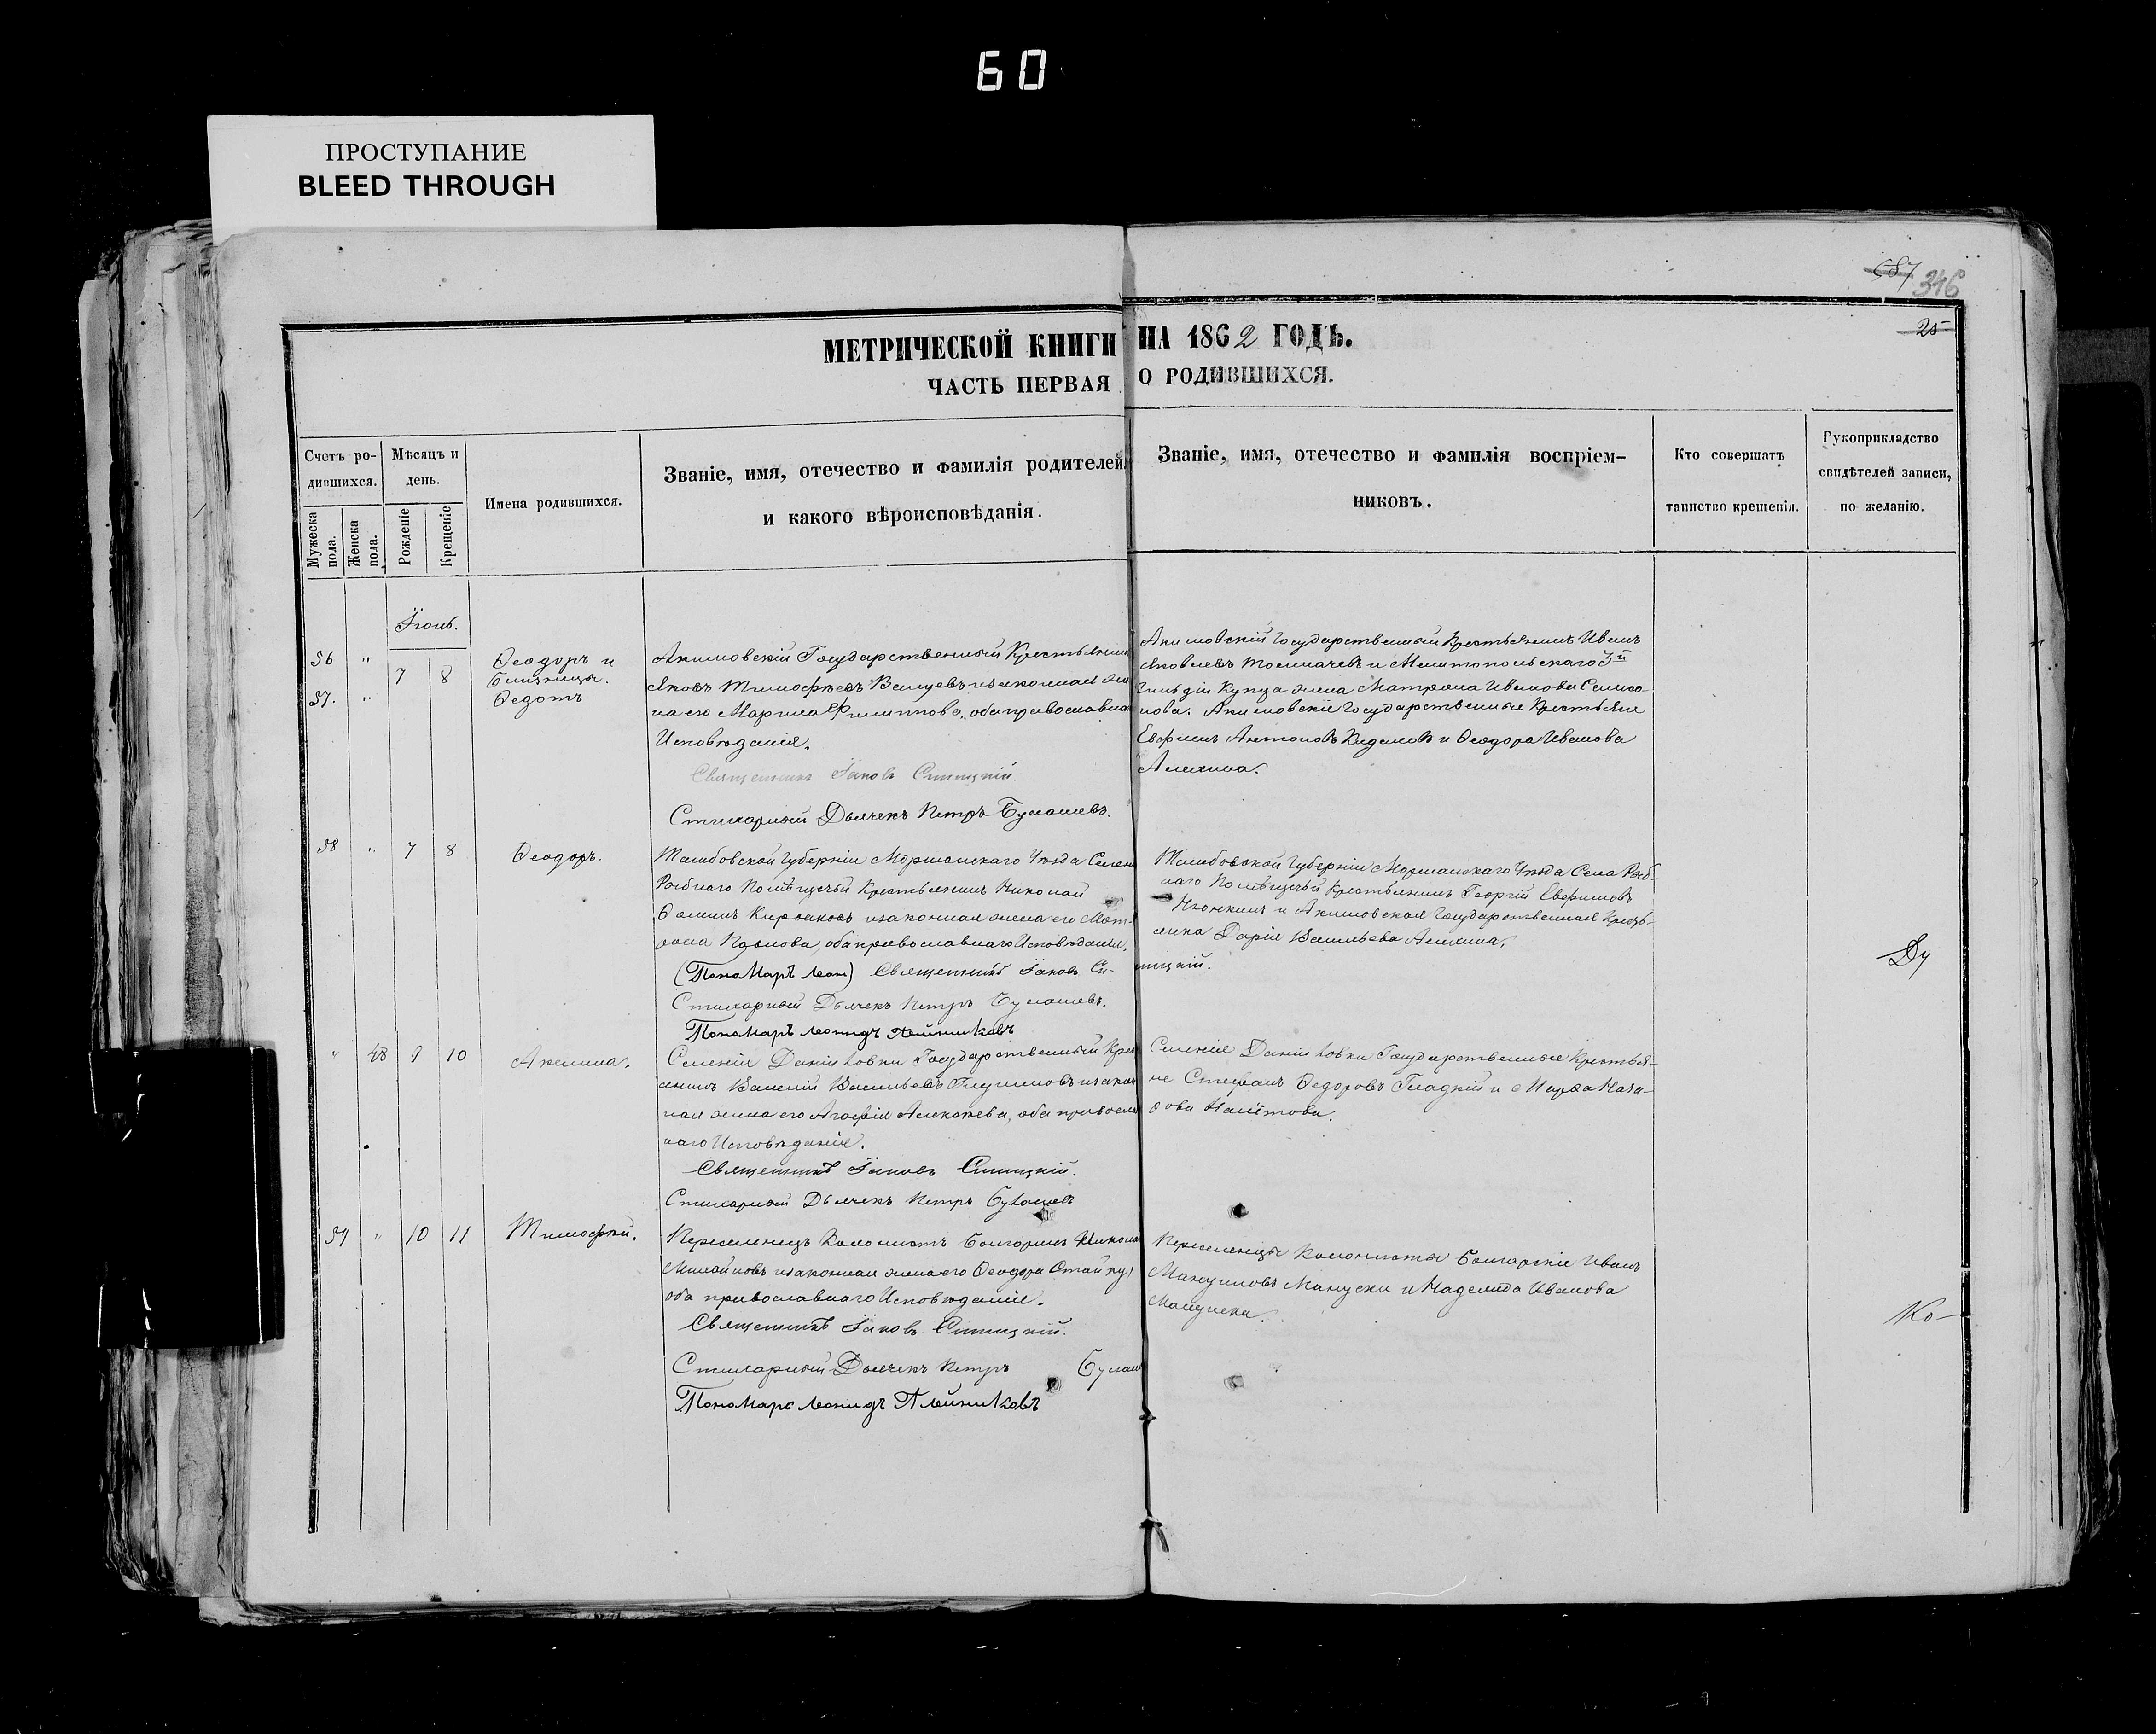 60
ПРОСТУПАНИЕ
BLEED THROUGH
687 346
25
МЕТРИЧЕСКОЙ КНИГИ НА 1862 ГОДЪ.
ЧАСТЬ ПЕРВАЯ О РОДИВШИХСЯ.
Счетъ ро-
дившихся.
Мужеска пола.
Женска пола.
Мѣсяцъ и
день.
Рожденіе
Крещеніе
Имена родившихся.
Званіе, имя, отечество и фамилія родителей,
и какого вѣроисповѣданія.
Званіе, имя, отечество и фамилія воспріем-
никовъ.
Кто совершатъ
таинство крещенія.
Рукоприкладство
свидѣтелей записи,
по желанію.
Іюнь.
56 " 7 8 Ѳеодоръ и
близнецы.
57. " Ѳедотъ
Акимовскій Государственный Крестьянин
Яковъ Тимофѣевъ изаконная же
на его Марина Филиппова, оба православна
Исповѣданія.
Священникъ Іаковъ Синицкій.
Стихарный Дьячекъ Петръ Булашевъ.
Акимовскій Государственный Крестьянинъ Иванъ
Яковлевъ Толмачевъ и Мелитопольскаго 3й
Гильдіи Купца жена Матрона Иванова Селива-
нова. Акимовскіе Государственные Крестьяне
Евфимъ Антоновъ и Ѳеодора Иванова
Алехина.
58 " 7 8 Ѳеодоръ.
Тамбовской Губерніи Моршанскаго Уѣзда Селенія
Помѣщичьй Крестьянинъ Николай
Ѳоминъ изаконная жена его Мат-
рона оба православнаго Исповѣданія.
(Пономарь Леон) Священникъ Іаковъ Си-
ницкій.
Стихарный Дьячекъ Петръ Булашевъ.
Пономарь Леонидъ Алейниковъ
Тамбовской Губерніи Моршанскаго Уѣзда Села
Помѣщичьй Крестьянинъ Георгій Евфимовъ
и Акимовская Государственная Кресть-
янка Дарія Васильева Алехина.
Ду
" 48 9 10 Акелина.
Селенія Даниловки Государственный Крес
янинъ Василій Васильевъ изакон
ная жена его Агафія Алексѣева, оба православ
наго Исповѣданія.
Священникъ Іаковъ Синицкій.
Стихарный Дьячекъ Петръ Булашевъ
Селенія Даниловки Государственные Крестья-
не Стефанъ Ѳедоровъ Гладкій и Марѳа Наза-
рова
59 " 10 11 Тимофей.
Переселенецъ Колонистъ Болгаринъ Николай
изаконная жена его Ѳеодора
оба православнаго Исповѣданія.
Священникъ Іаковъ Синицкій.
Стихарный Дьячекъ Петръ Булаш
Пономарь Леонидъ Алейниковъ
Переселенцы Колонисты Болгарскіе Иванъ
и Надежда Иванова
Ко-